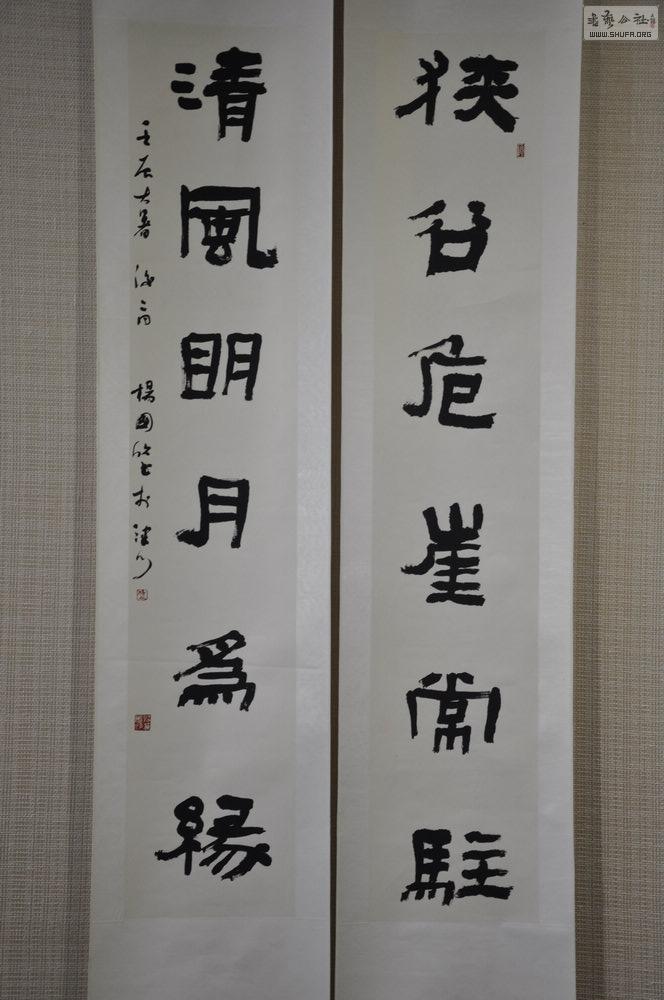 狭谷危崖常駐
清風明月為緣
壬辰大暑 楊國 於津門
WWW.SHUFA.ORG